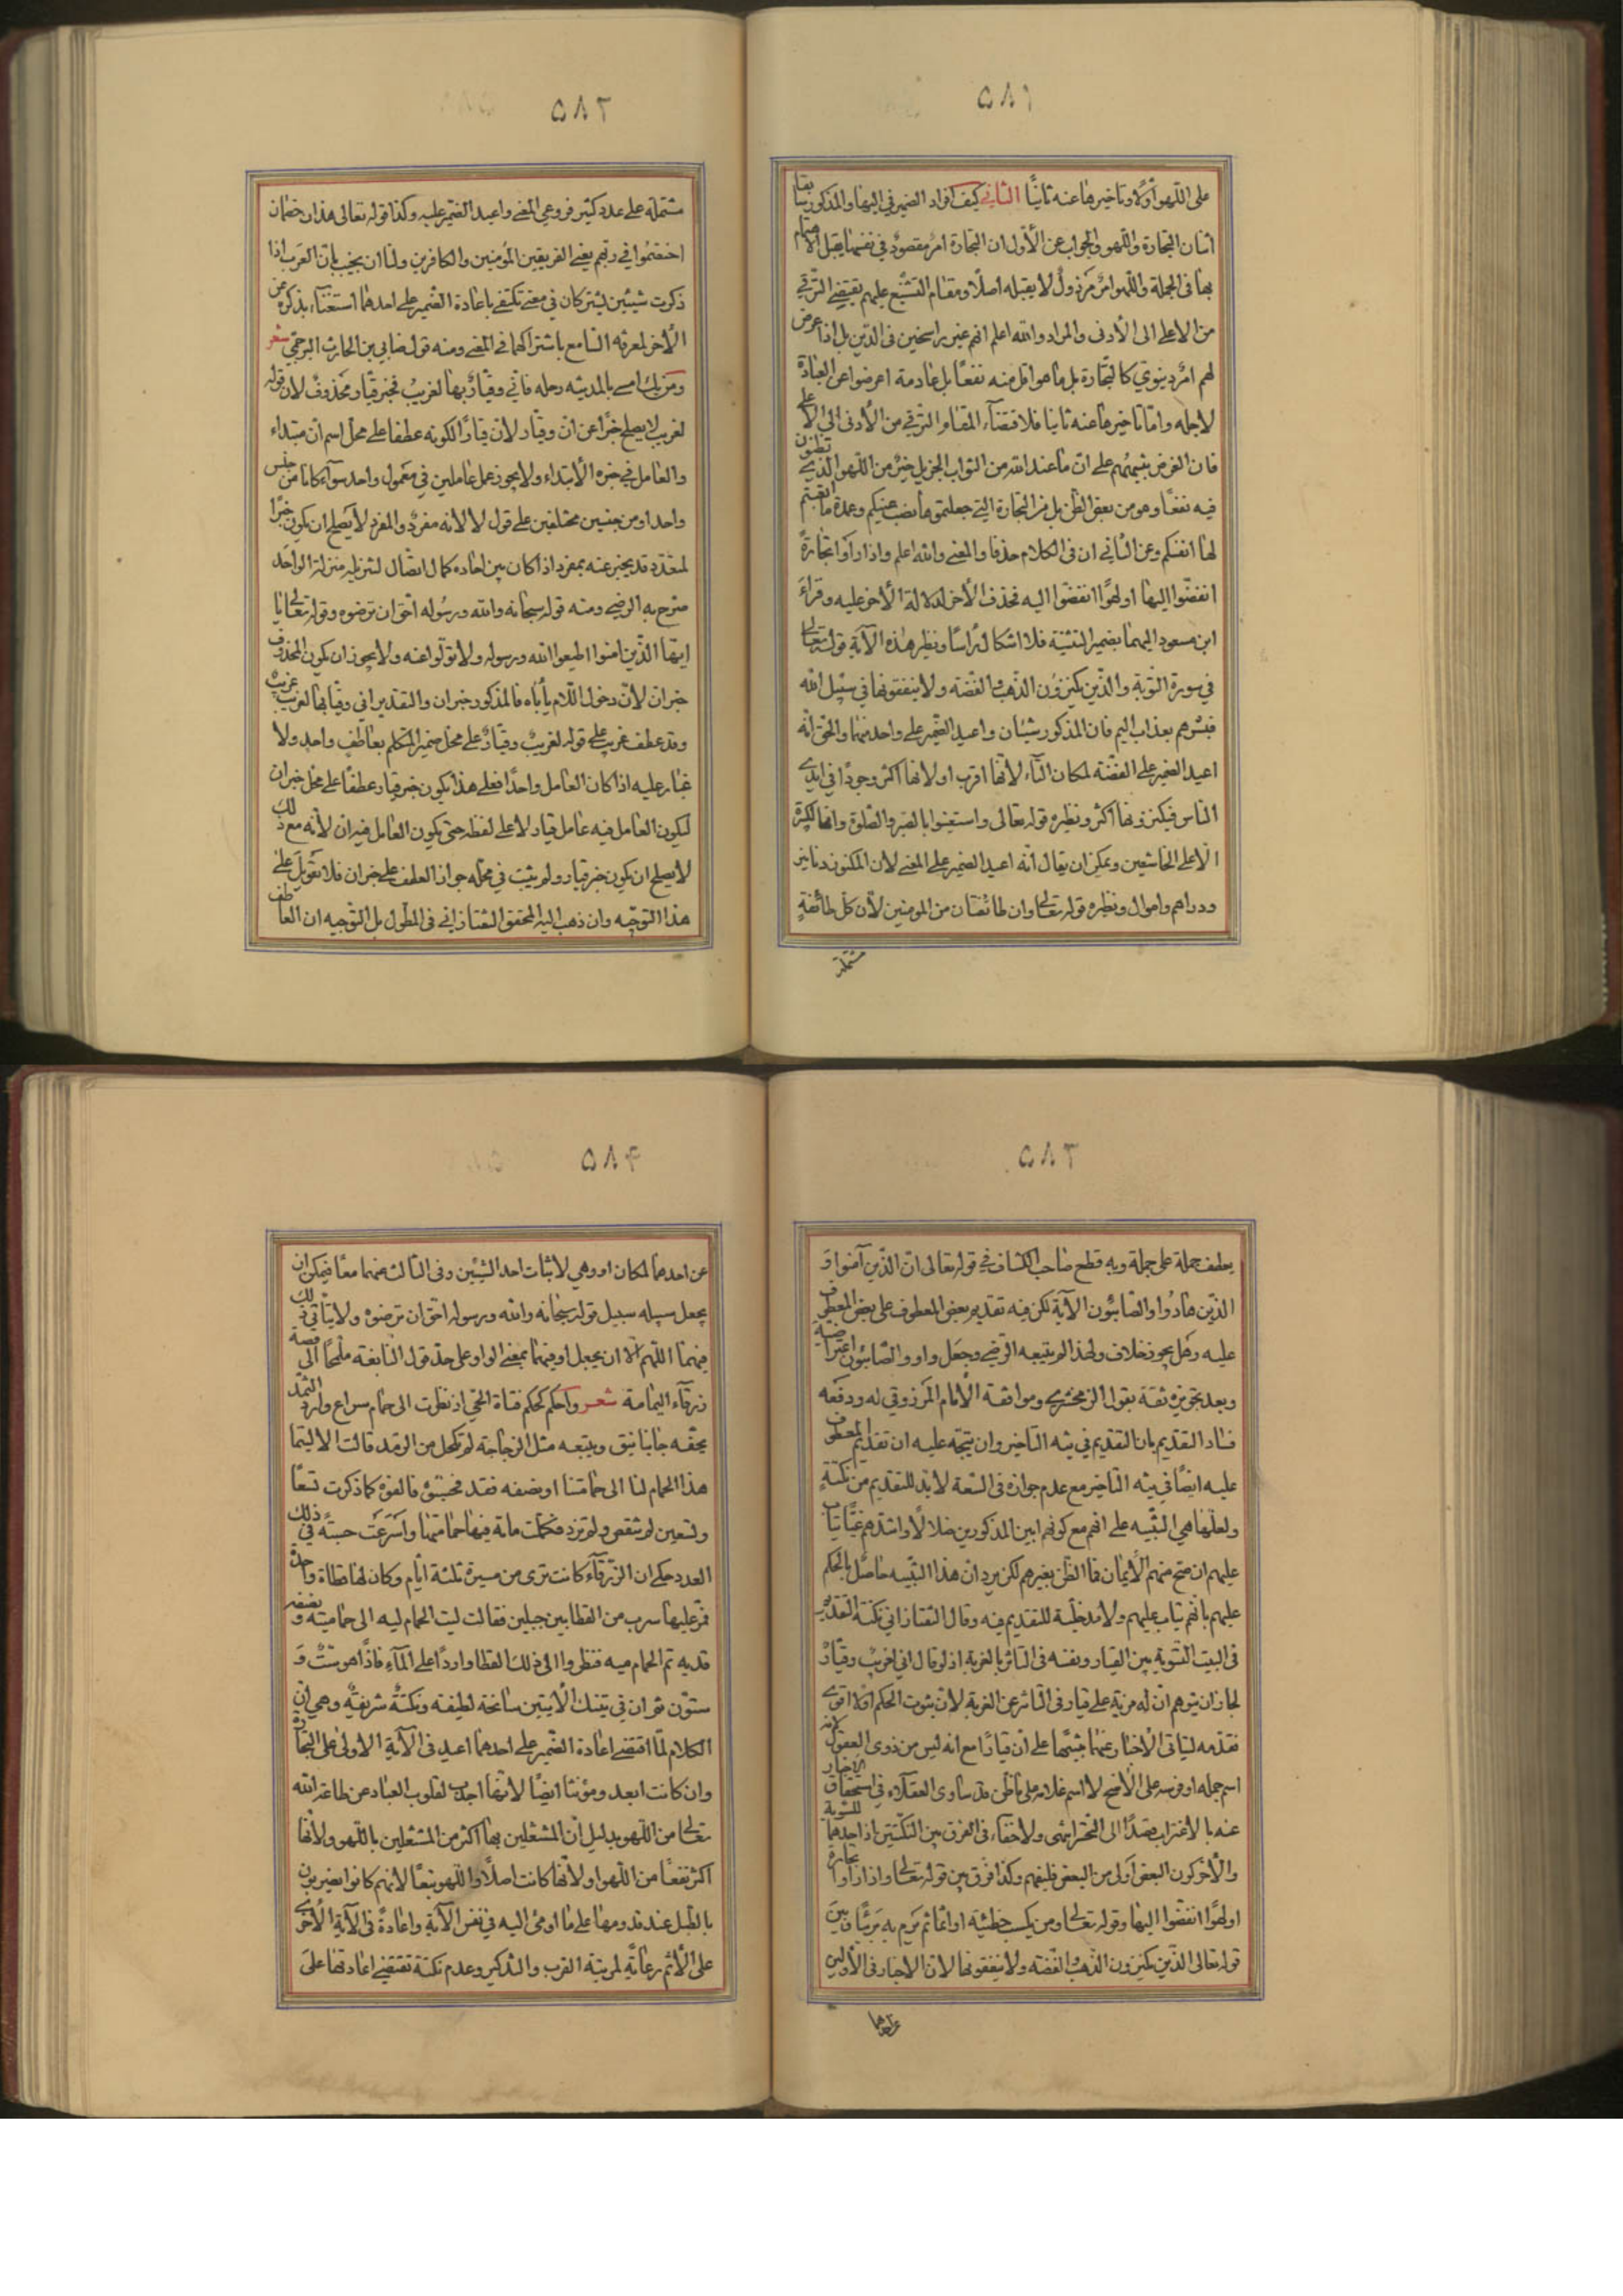 ٥٨١
على اللهو أوّلا وتاخيرها عنه ثانيًا الثاني كيف افراد الضمير في اليها والمذكور سابقا
اثنان التجارة واللهو والجواب عن الأول ان التجارة امر مقصود في نفسها يقبل الاهتمام
بها في الجملة واللهو امر مرذول لا يقبله اصلًا ومقام التشنيع عليهم يقتضي الترقي
من الاعلى الى الأدنى والمراد والله اعلم انهم غير راسخين في الدين بل اذا عرض
لهم امر دنيوي كالتجارة بل ما هو اقل منه نفعًا بل عادمه اعرضوا عن العبادة
لاجله واما تاخيرها عنه ثانيا فلاقتضاء المقام الترقي من الأدنى الى الأعلى
فان الغرض تنبيههم على ان ما عند الله من الثواب الجزيل خير من اللهو الذي تظنون
فيه نفعًا وهو من بعض الظن بل من التجارة التي جعلتموها نصب عينيكم وعمدة ما اتعبتم
لها انفسكم وعن الثاني ان في الكلام حذفا والمعنى والله اعلم واذا رأوا تجارةً
انفضّوا اليها او لهوًا انفضّوا اليه فحذف الأخر لدلالة الأخر عليه وقراءة
ابن مسعود اليهما بضمير التثنية فلا اشكال رأسًا ونظير هذه الآية قوله تعالى
في سورة التوبة والذين يكنزون الذهب والفضة ولا ينفقونها في سبيل الله
فبشرهم بعذاب اليم فان المذكور شيئان واعيد الضمير على واحد منهما والحق انه
اعيد الضمير على الفضة لمكان التاء لأنها اقرب او لانها اكثر وجودًا في ايدي
الناس فيكنزونها اكثر ونظيره قوله تعالى واستعينوا بالصبر والصلوة وانها لكبيرة
الا على الخاشعين ويمكن ان يقال انه اعيد الضمير على المعنى لان المكنوز دنانير
ودراهم واموال ونظيره قوله تعالى وان طائفتان من المومنين لأن كل طائفة
مشتملة
٥٨٢
مشتملة على عدد كثير فروعي المعنى واعيد الضمير عليه وكذا قوله تعالى هذان خصمان
اختصموا في ربهم يعني الفريقين المؤمنين والكافرين ولنا ان نجيب بان العرب اذا
ذكرت شيئين يشتركان في معنى تكتفي باعادة الضمير على احدهما استغناء بذكره عن
الأخر لمعرفة السامع باشتراكهما في المعنى ومنه قول ضابي بن الحارث البرجمي شعر
ومن يك امسى بالمدينة رحله فاني وقيار بها لغريب فخبر قيار محذوف لان قوله
لغريب لا يصلح خبرًا عن ان وقيار لأن قيارًا لكونه عطفا على محل اسم ان مبتداء
والعامل في خبره الأبتداء ولا يجوز عمل عاملين في معمول واحد سواء كانا من جنس
واحد او من جنسين مختلفين على قول لا لأنه مفرد والمفرد لا يصلح ان يكون خبرًا
لمتعدد قد يخبر عنه بمفرد اذا كان بين احاده كمال اتصال لتنزيله منزلة الواحد
صرح به الرضي ومنه قوله سبحانه والله ورسوله احق ان ترضوه وقوله تعالى يا
ايها الذين امنوا اطيعوا الله ورسوله ولا تولوا عنه ولا يجوز ان يكون المحذوف
خبر ان لأن دخول اللام يأباه فالمذكور خبر ان والتقدير اني وقيار بها لغريب غريب
وقد عطف غريب على قوله لغريب وقيار على محل ضمير المتكلم بعاطف واحد ولا
غبار عليه اذا كان العامل واحدًا فعلى هذا يكون خبر قيار عطفًا على محل خبر ان
ليكون العامل فيه عامل قيار لا على لفظه حتى يكون العامل فيه ان لأنه مع ذلك
لا يصلح ان يكون خبر قيار ولم يثبت في محله جواز العطف على خبر ان فلا تعويل على
هذا التوجيه وان ذهب اليه المحقق التفتازاني في المطول بل التوجيه ان العاطف
٥٨٣
يعطف جملة على جملة وبه قطع صاحب الكشاف في قوله تعالى ان الذين آمنوا و
الذين هادوا والصابئون الآية لكن فيه تقديم بعض المعطوف على بعض المعطوف
عليه وهل يجوز خلاف ولهذا لم يتبعه الرضي وجعل واو والصابئون اعتراضية
وبعد تجويزه ثقة بقول الزمخشري وموافقة الأمام المرزوقي له ودفعه
فساد التقديم بان التقديم في نية التاخير وان يتجه عليه ان تقديم المعطوف
عليه ايضًا في نية التاخير مع عدم جوازه في السعة لا بد للتقديم من نكتة
ولعلها هي التنبيه على انهم مع كونهم ابين المذكورين ضلالًا واشدهم غيًا يتاب
عليهم ان صح منهم الأيمان فما الظن بغيرهم لكن يرد ان هذا التنبيه حاصل بالحكم
عليهم بانهم يتاب عليهم ولا مدخلية للتقديم فيه وقال التفتازاني نكتة التقديم
في البيت التسوية بين القيار ونفسه في التاثر بالغربة اذ لو قال اني لغريب وقيار
لجاز ان يتوهم ان له مزية على قيار في التاثر عن الغربة لأن ثبوت الحكم اولا اقوى
فقدمه ليتاتى الأخبار عنهما تنبيهًا على ان قيارًا مع انه ليس من ذوي العقول لانه
اسم جمله او فرسه على الأصح لا اسم غلامه على ما ظن قد ساوى العقلاء في استحقاق الاخبار
عنه بالأغتراب قصدًا الى التحسر انتهى ولا خفاء في الفرق بين النكتتين اذ احدهما للتسوية
والأخر كون البعض أولى من البعض فليفهم وكذا فرق بين قوله تعالى واذا رأوا تجارة
او لهوًا انفضوا اليها وقوله تعالى ومن يكسب خطيئة او اثما ثم يرم به بريئًا وبين
قوله تعالى الذين يكنزون الذهب والفضة ولا ينفقونها لان الاخبار في الأولين
عن احدهما
٥٨۴
عن احدهما لمكان او وهي لاثبات احد الشيئين وفي الثالث عنهما معًا فيمكن ان
يجعل سبيله سبيل قوله سبحانه والله ورسوله احق ان ترضوه ولا يتاتى ذلك
فيهما اللهم الا ان يجعل او فيهما بمعنى الواو على حد قول النابغة ملمحًا الى قصة
زرقاء اليمامة شعر واحكم كحكم فتاة الحي اذ نظرت الى حمام سراع وارد الثمد
يحفه جانبا نيق ويتبعه مثل الزجاجة لم تكحل من الرمد قالت الا ليتما
هذا الحمام لنا الى حمامتنا او نصفه فقد فحسبوه فالفوه كما ذكرت تسعًا
وتسعين لم تنقص ولم تزد فكملت مائة فيها حمامتها واسرعت حسبة في ذلك
العدد حكي ان الزرقاء كانت ترى من مسيرة ثلثة ايام وكان لها قطاة واحدة
فمر عليها سرب من القطا بين جبلين فقالت ليت الحمام ليه الى حمامتيه ونصفه
قديه تم الحمام ميه فنظروا الى ذلك القطا واردًا على الماء فاذا هو ست و
ستون ثم ان في تينك الأيتين سانحة لطيفة ونكتة شريفة وهي ان
الكلام لما اقتضى اعادة الضمير على احدهما اعيد في الآية الاولى على التجارة
وان كانت ابعد ومؤنثا ايضًا لأنها اجذب لقلوب العباد عن طاعة الله
تعالى من اللهو بدليل ان المشتغلين بها اكثر من المشتغلين باللهو ولأنها
اكثر نفعًا من اللهو او لأنها كانت اصلًا واللهو تبعًا لأنهم كانوا يضربون
بالطبل عند قدومها على ما اومئ اليه في نفس الآية واعادة في الآية الأخرى
على الأثم رعاية لمرتبة القرب والتذكير وعدم نكتة تقتضي اعادتها على